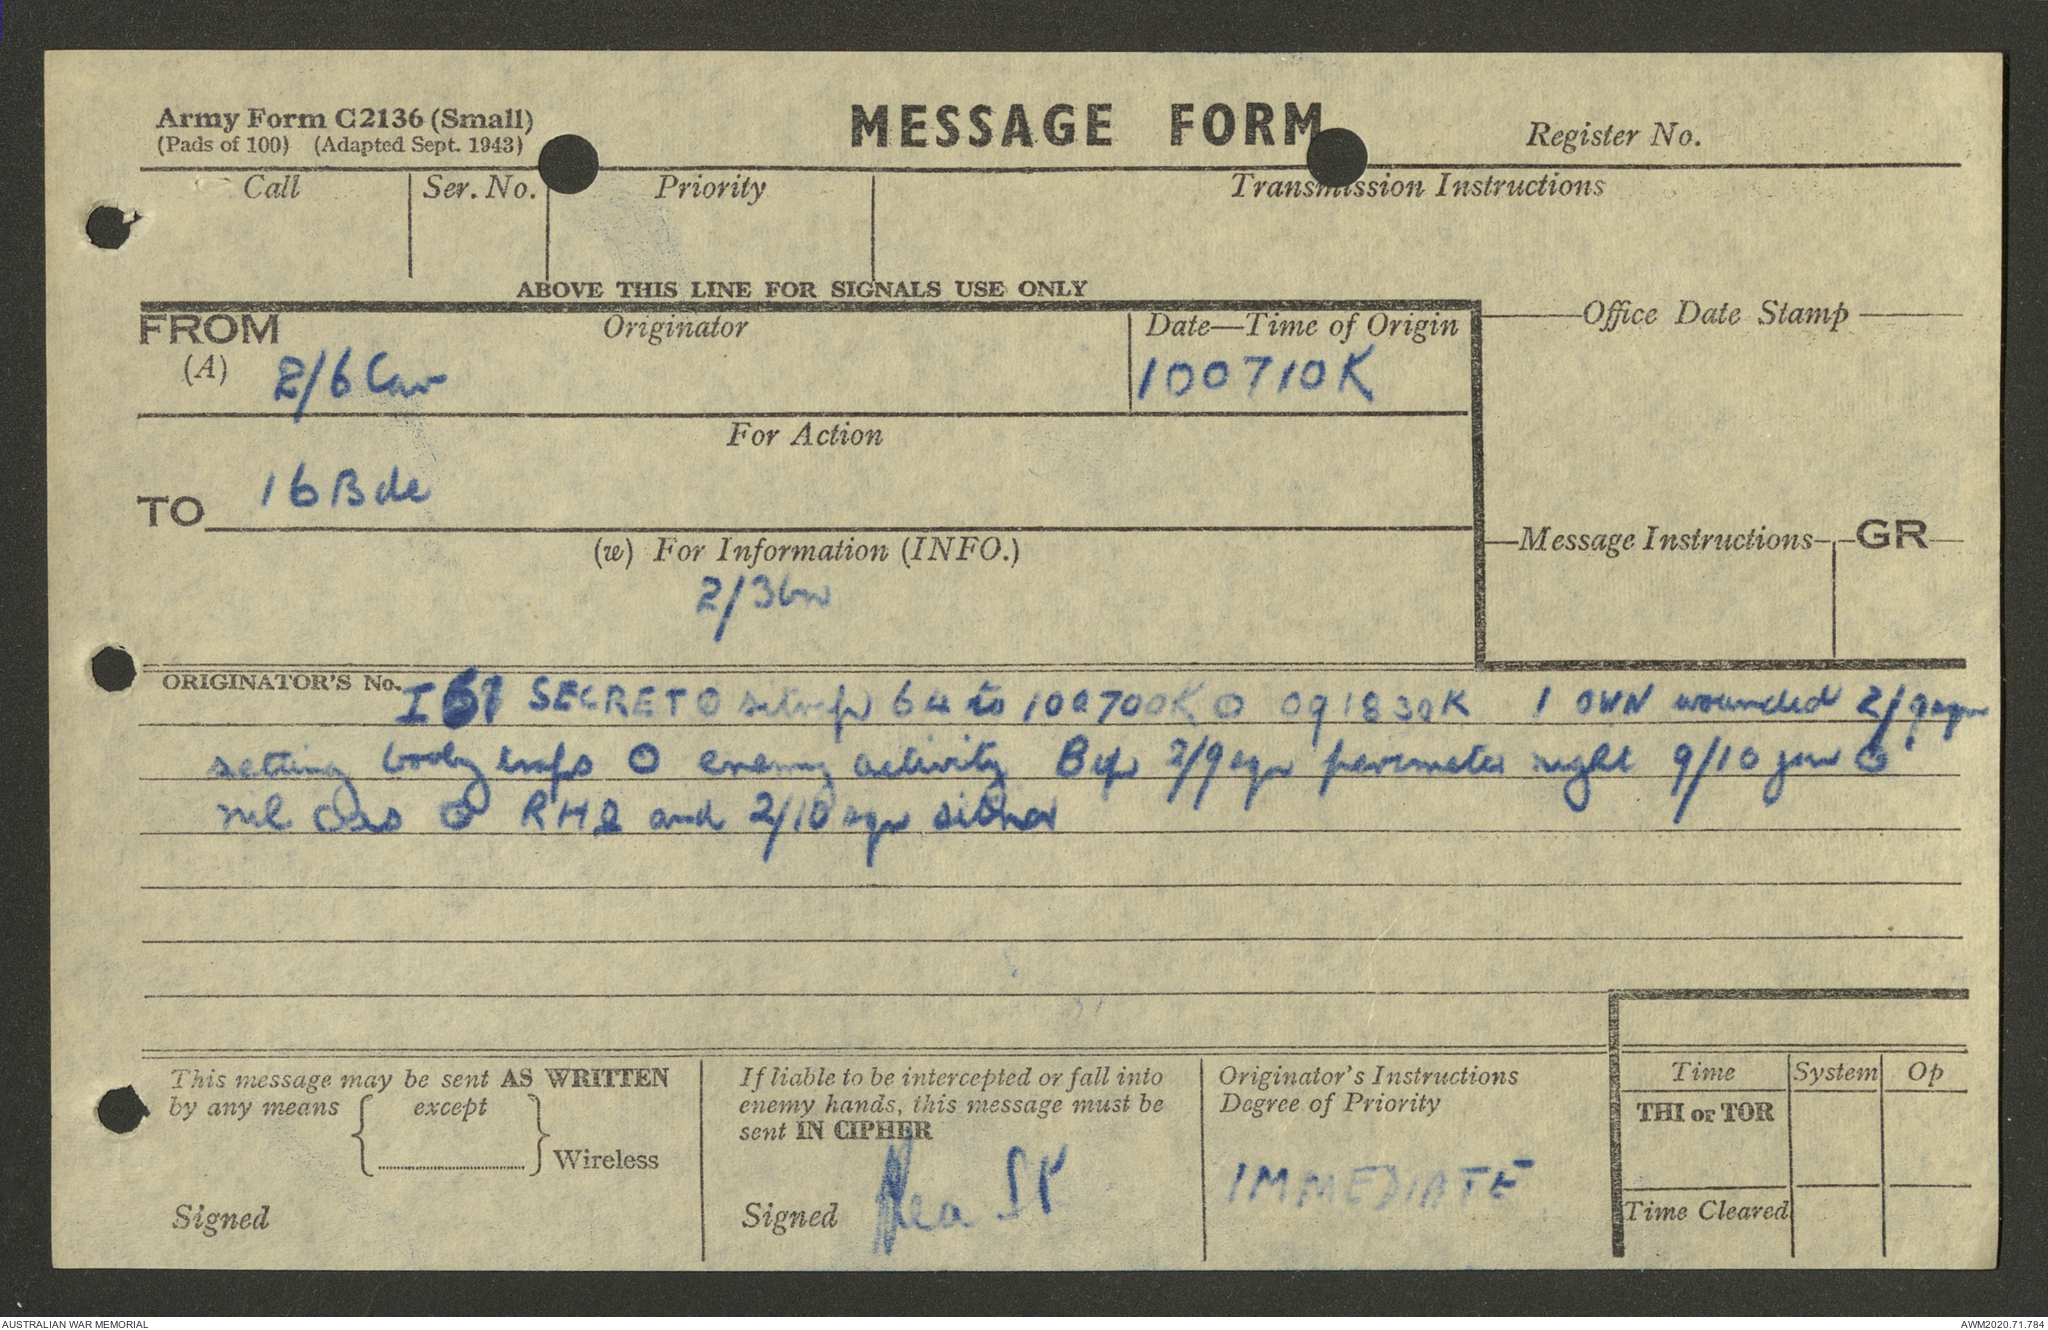 Army Form C2136 (Small)
(Pads of 100) (Adapted Sept. 1943)
MESSAGE FORM
Register No.
Call
Ser. No.
Priority
Transmission Instructions
ABOVE THIS LINE FOR SIGNALS USE ONLY
FROM
(A)
Originator
2/6 Cav
Date—Time of Origin
100710K
Office Date Stamp
For Action
TO
16 Bde
(w) For Information (INFO.)
2/3 bn
Message Instructions
GR
ORIGINATOR'S No.
I 61 SECRET O sitrep 64 to 100700K O 091830K 1 OWN wounded 2/9 sqn
setting booby traps O enemy activity 2/9 sqn perimeter night 9/10 jun O
nil cas O RHQ and 2/10 sqn
This message may be sent AS WRITTEN
by any means { except
} Wireless
Signed
If liable to be intercepted or fall into
enemy hands, this message must be
sent IN CIPHER
Signed
Originator's Instructions
Degree of Priority
IMMEDIATE
Time
System
Op
THI or TOR
Time Cleared
AUSTRALIAN WAR MEMORIAL
AWM2020.71.784